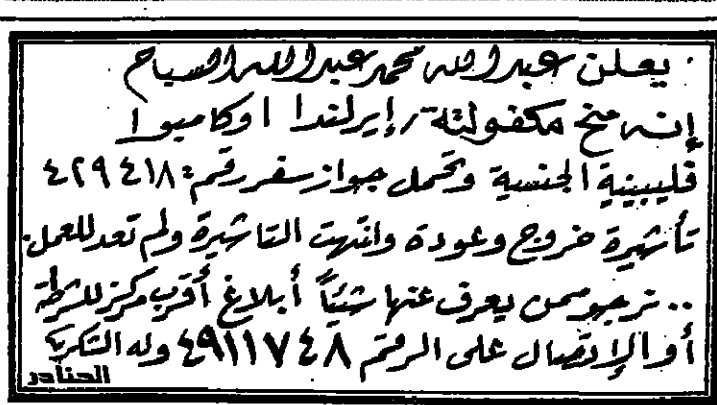 يعلن عبدالله محمد عبدالله السياح
إنه منح مكفولته / إيرلندا اوكامبوا
فليبينية الجنسية وتحمل جواز سفر رقم: ٤٢٩٤١٨
تأشيرة خروج وعودة وانتهت التاشيرة ولم تعد للعمل.
.. نرجو ممن يعرف عنها شيئاً أبلاغ أقرب مركز للشرطة
أو الإتصال على الرقم ٤٩١١٧٤٨ وله الشكر،